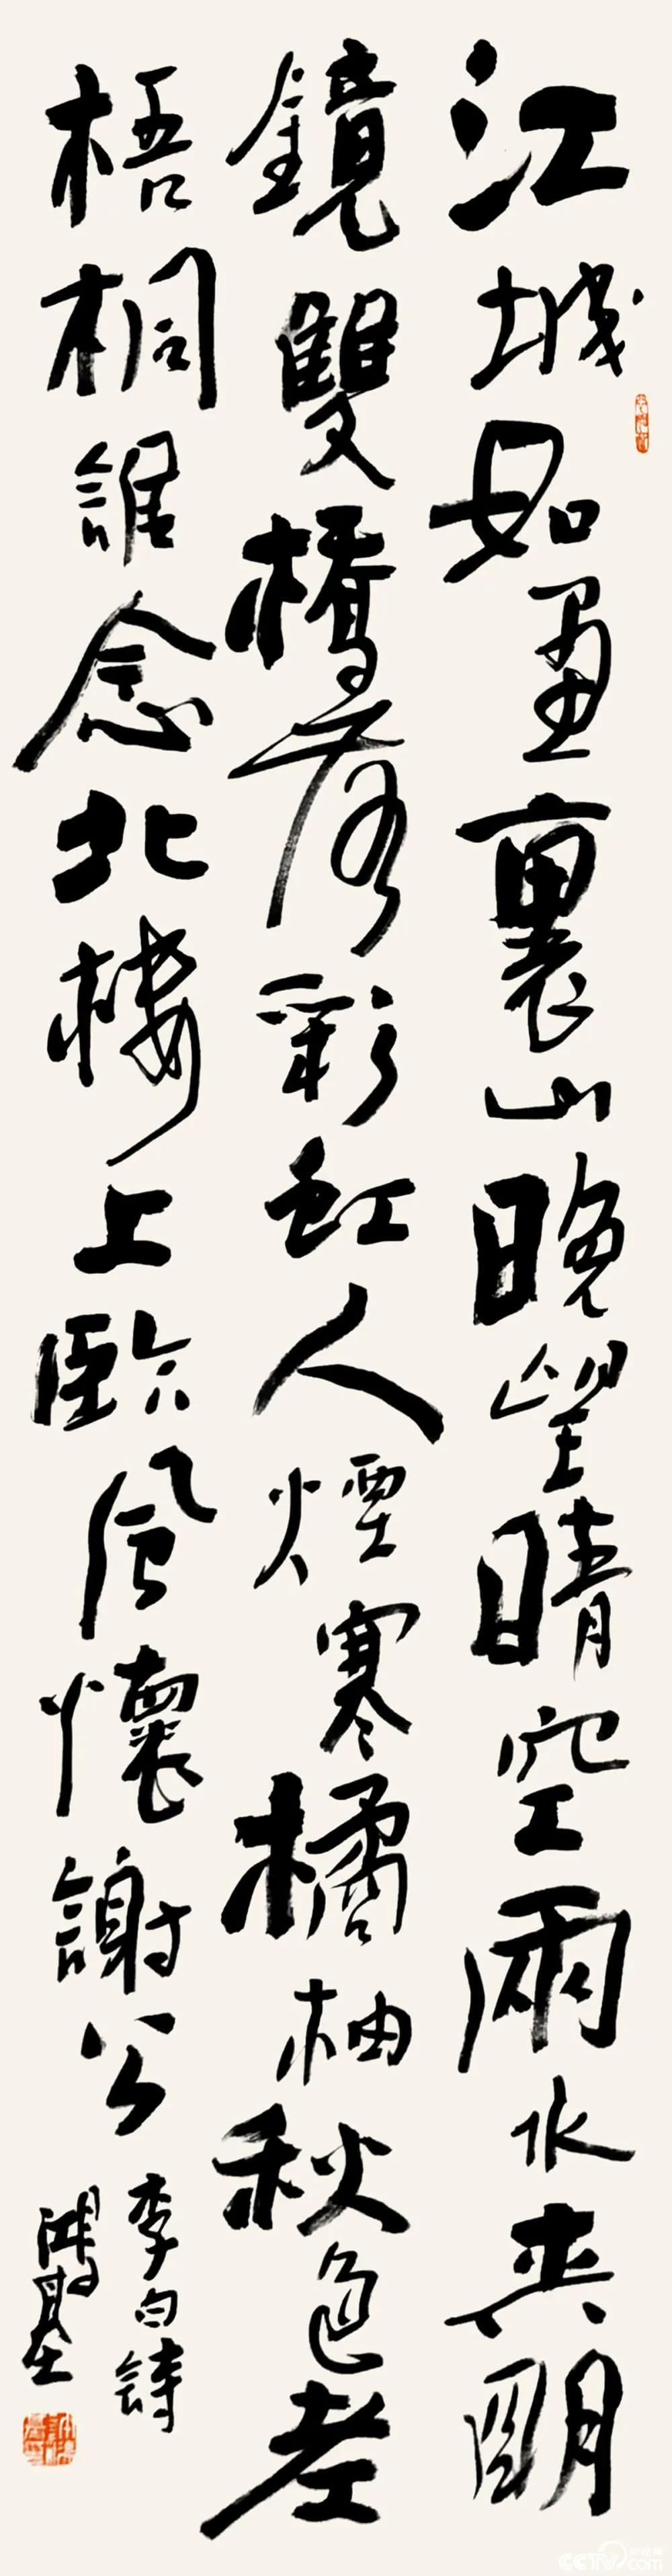 江城如畫裏山晚望晴空兩水夾明
鏡雙橋落彩虹人煙寒橘柚秋色老
梧桐誰念北樓上臨風懷謝公
李白詩
鴻基
CCTV.com